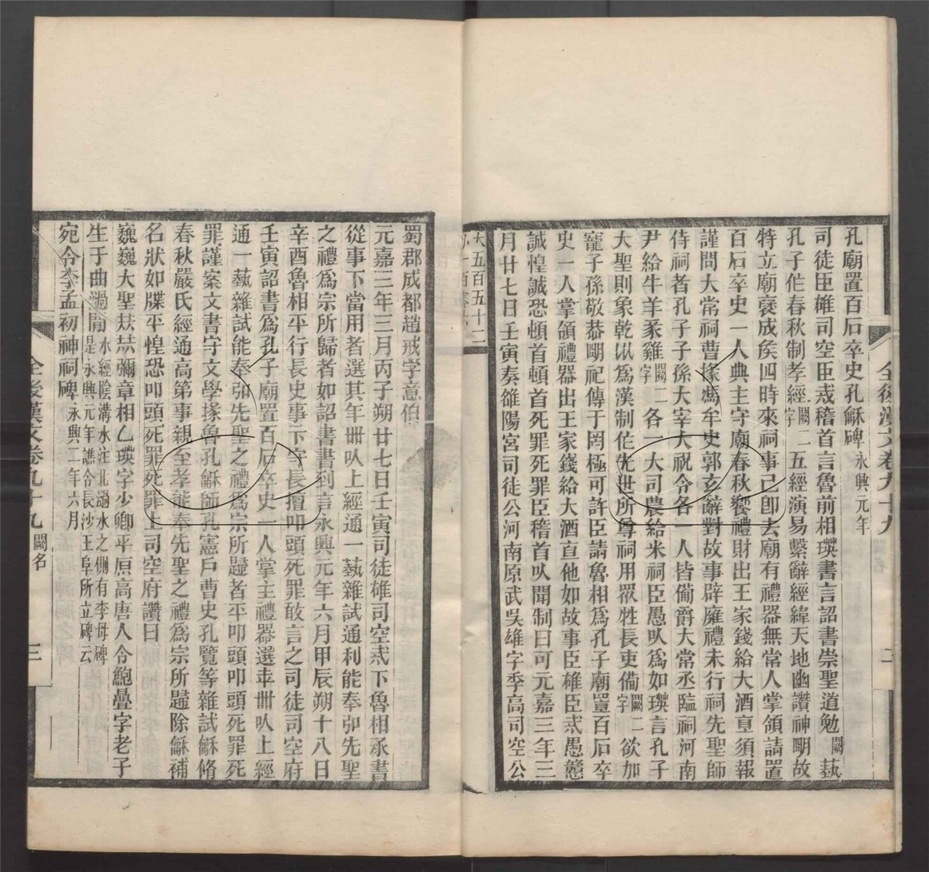 孔廟置百石卒史孔龢碑永興元年
司徒臣雄司空臣戒稽首言魯前相瑛書言詔書崇聖道勉闕藝
孔子作春秋制孝經闕二字五經演易繫辭經緯天地幽讚神明故
特立廟襃成矦四時來祠事已即去廟有禮器無常人掌領請置
百石卒史一人典主守廟春秋饗禮財出王家錢給大酒直須報
謹問大常祠曹掾馮牟史郭玄辭對故事辟廱禮未行祠先聖師
侍祠者孔子子孫大宰大祝令各一人皆備爵大常丞臨祠河南
尹給牛羊豕雞闕二字各一大司農給米祠臣愚㠯爲如瑛言孔子
大聖則象乾㘴爲漢制作先世所尊祠用眾牲長吏備闕二字欲加
寵子孫敬恭朙祀傳于罔極可許臣請魯相爲孔子廟置百石卒
史一人掌領禮器出王家錢給大酒直他如故事臣雄臣戒愚戇
誠惶誠恐頓首頓首死罪死罪臣稽首㠯聞制曰可元嘉三年三
月廿七日壬寅奏雒陽宮司徒公河南原武吳雄字季高司空公
大五百五十二
全後漢文卷九十九
二
蜀郡成都趙戒字意伯
元嘉三年三月丙子朔廿七日壬寅司徒雄司空戒下魯相承書
從事下當用者選其年卌㠯上經通一藝雜試通利能奉弘先聖
之禮爲宗所歸者如詔書書到言永興元年六月甲辰朔十八日
辛酉魯相平行長史事卞守長擅叩頭死罪敢言之司徒司空府
壬寅詔書爲孔子廟置百石卒史一人掌主禮器選年卌㠯上經
通一藝雜試能奉弘先聖之禮爲宗所歸者平叩頭叩頭死罪死
罪謹案文書守文學掾魯孔龢師孔憲戶曹史孔覽等雜試龢脩
春秋嚴氏經通高第事親至孝能奉先聖之禮爲宗所歸除龢補
名狀如牒平惶恐叩頭死罪死罪上司空府讚曰
巍巍大聖赫赫彌章相乙瑛字少卿平原高唐人令鮑疊字老子
生于曲濄閒水經陰溝水注北濄水之側有李母碑是永興元年譙令長沙王阜所立碑云
宛令李孟初神祠碑永興二年六月
全後漢文卷九十九
闕名
三